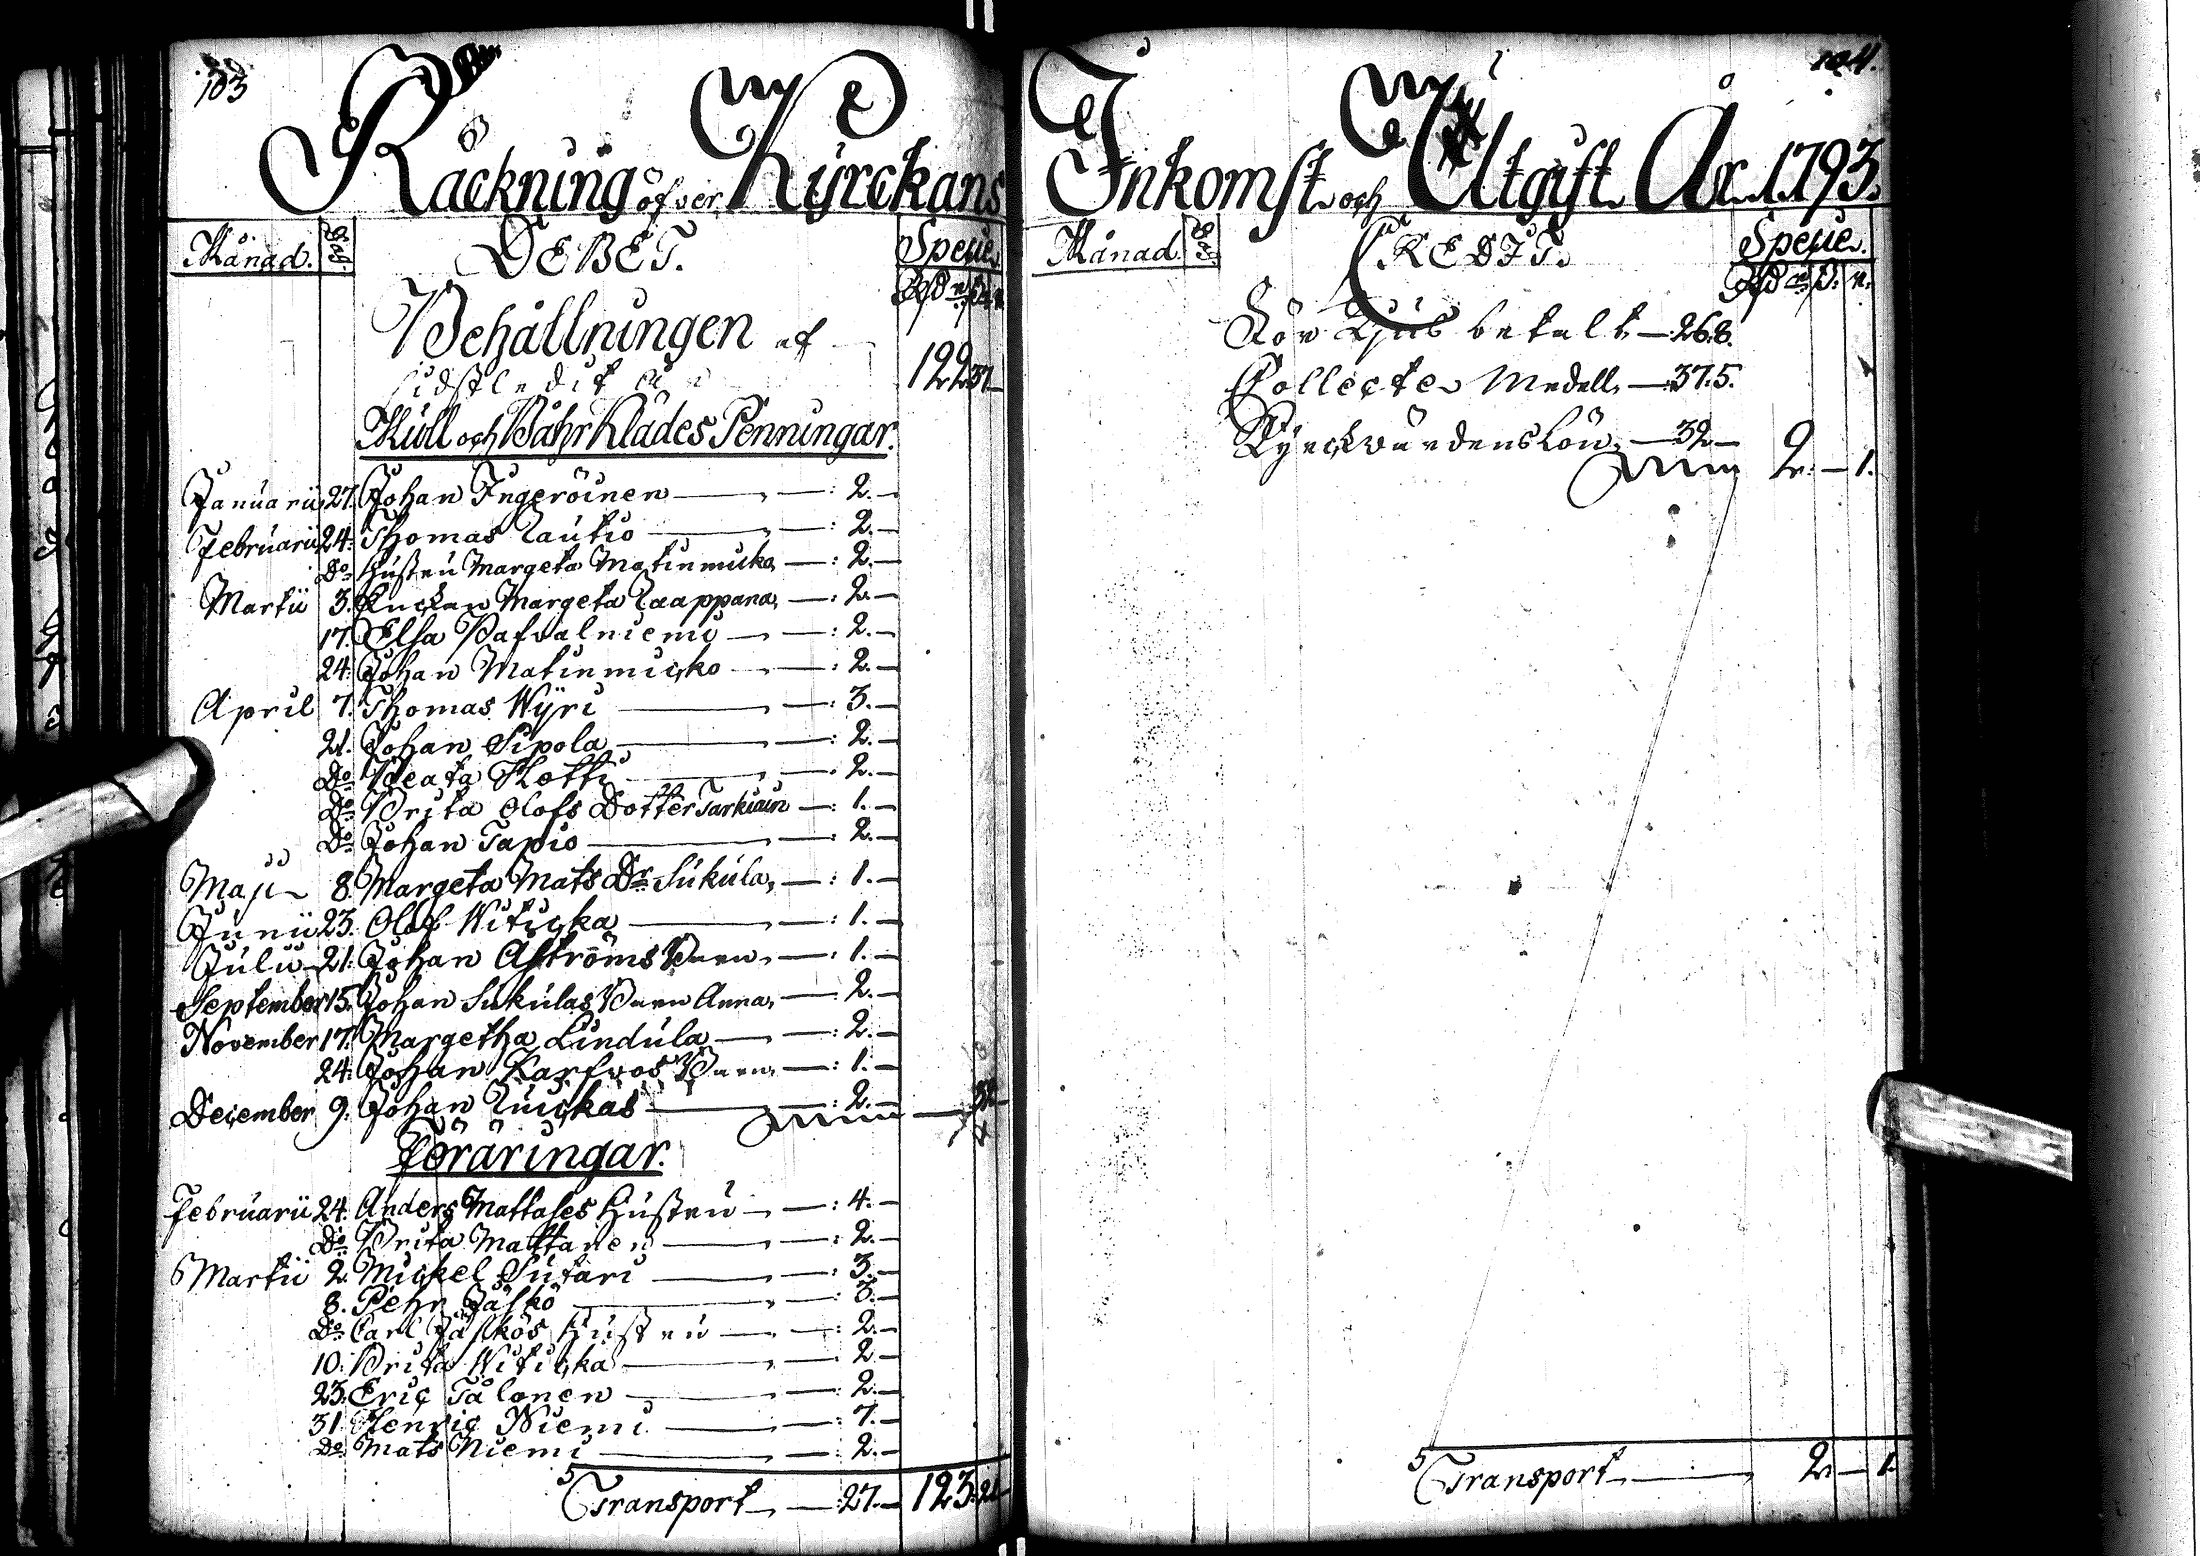 103
Räckning öfver Kyrckans
Månad. Dag. DEBET. Specie
Rd s. r.
Behållningen af
sidstledit år 122 37 —
Mull och Båhr Klädes Penningar.
Januarii 27. Johan Ingeröinen — : 2. —
Februarii 24. Thomas Rautio — : 2. —
Do Hustru Margeta Matinmicko — : 2. —
Martii 3. Enckan Margeta Raappana — : 2. —
17. Elsa Pafvalniemi — : 2. —
24. Johan Matinmicko — : 2. —
April 7. Thomas Wÿri — : 3. —
21. Johan Sipola — : 2. —
Do Beata Kotti — : 2. —
Do Brita Olofs Dotter Tarkiain — : 1. —
Do Johan Tapio — : 2. —
Maji 8. Margeta Mats Dr Sukula — : 1. —
Junii 23. Olof Witicka — : 1. —
Julii 21. Johan Aströms Barn — : 1. —
September 15. Johan Sukulas Barn Anna — : 2. —
November 17. Margetha Lindula — : 2. —
24. Johan Karfvos Barn — : 1. —
December 9. Johan Ruickas — : 2. —
Föräringar.
Februarii 24. Anders Mattases Hustru — : 4. —
Do Brita Mattanen — : 2. —
Martii 2. Mickel Sutari — : 3. —
8. Pehr Jäskö — : 3. —
Do Carl Jäskös Hustru — : 2. —
10. Brita Witicka — : 2. —
23. Eric Talonen — : 2. —
31. Henric Niemi — : 7. —
Do Mats Niemi — : 2. —
Transport — : 27. — 123. 21
104.
Inkomst och Utgift År 1793.
Månad. Dag. CREDIT. Specie.
Rd s. r.
För Ljus betalt — 26.8.
Collecte Medell — 37.5.
Kyrckvärdens Lön — 32 —
2. — 1.
Transport — 2. — 1.